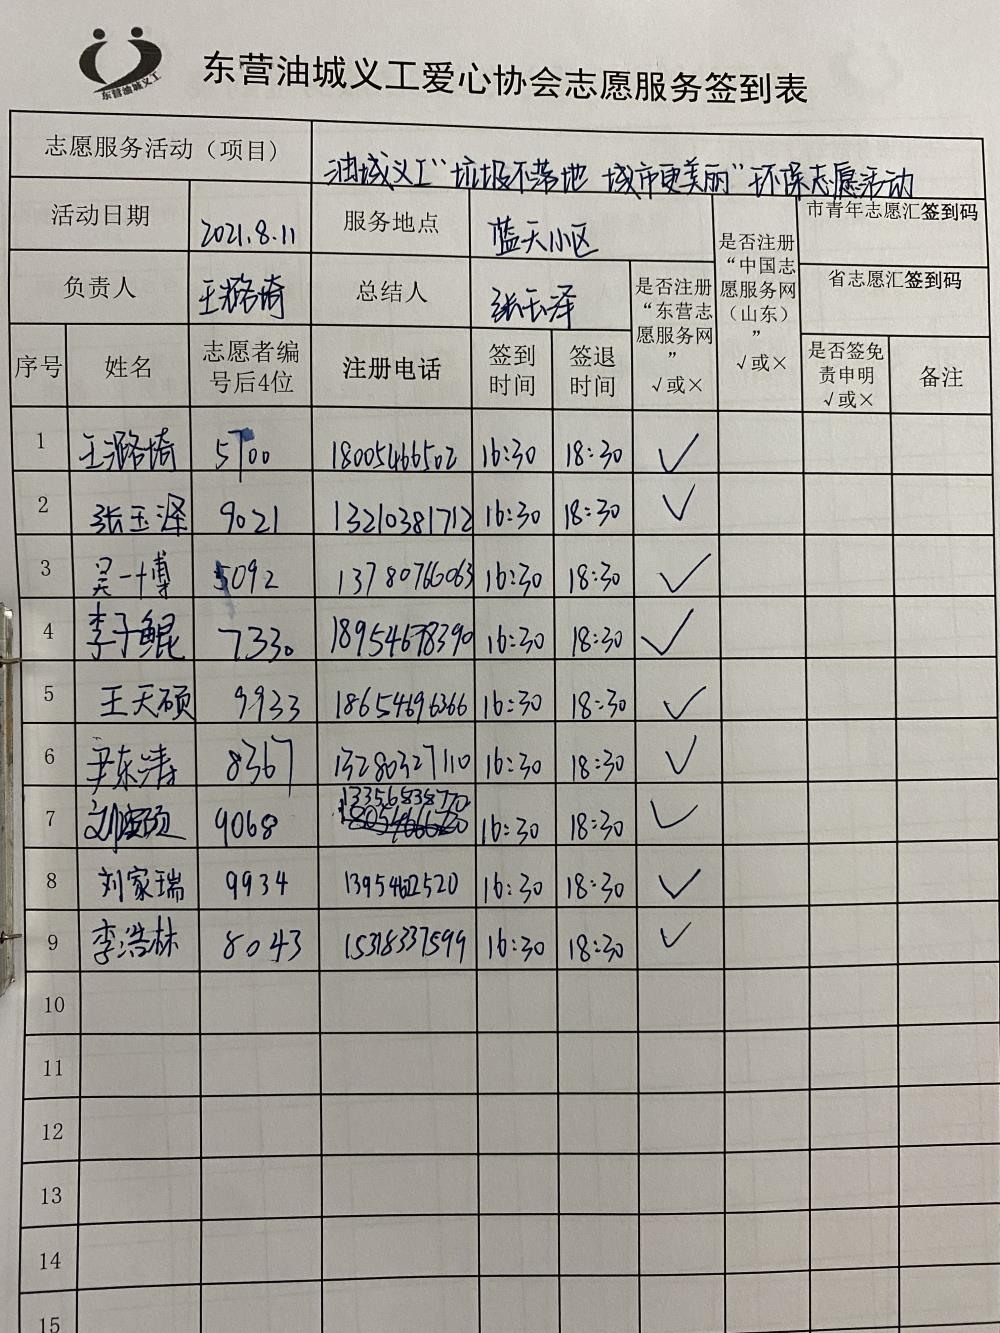 东营油城义工
东营油城义工爱心协会志愿服务签到表
志愿服务活动（项目） 油城义工“垃圾不落地 城市更美丽”环保志愿活动
活动日期 2021.8.11 服务地点 蓝天小区 是否注册“中国志愿服务网（山东）” √或× 市青年志愿汇签到码
负责人 王潞琦 总结人 张玉泽 是否注册“东营志愿服务网” √或× 省志愿汇签到码
序号 姓名 志愿者编号后4位 注册电话 签到时间 签退时间 是否签免责申明 √或× 备注
1 王潞琦 5700 18005466502 16:30 18:30 ✓
2 张玉泽 9021 13210381712 16:30 18:30 ✓
3 吴一博 5092 13780766063 16:30 18:30 ✓
4 李子鲲 7330 18954678390 16:30 18:30 ✓
5 王天硕 9933 18654696366 16:30 18:30 ✓
6 尹东涛 8367 13280327110 16:30 18:30 ✓
7 9068 13356838770 16:30 18:30 ✓
8 刘家瑞 9934 1395462520 16:30 18:30 ✓
9 李浩林 8043 15318337599 16:30 18:30 ✓
10
11
12
13
14
15